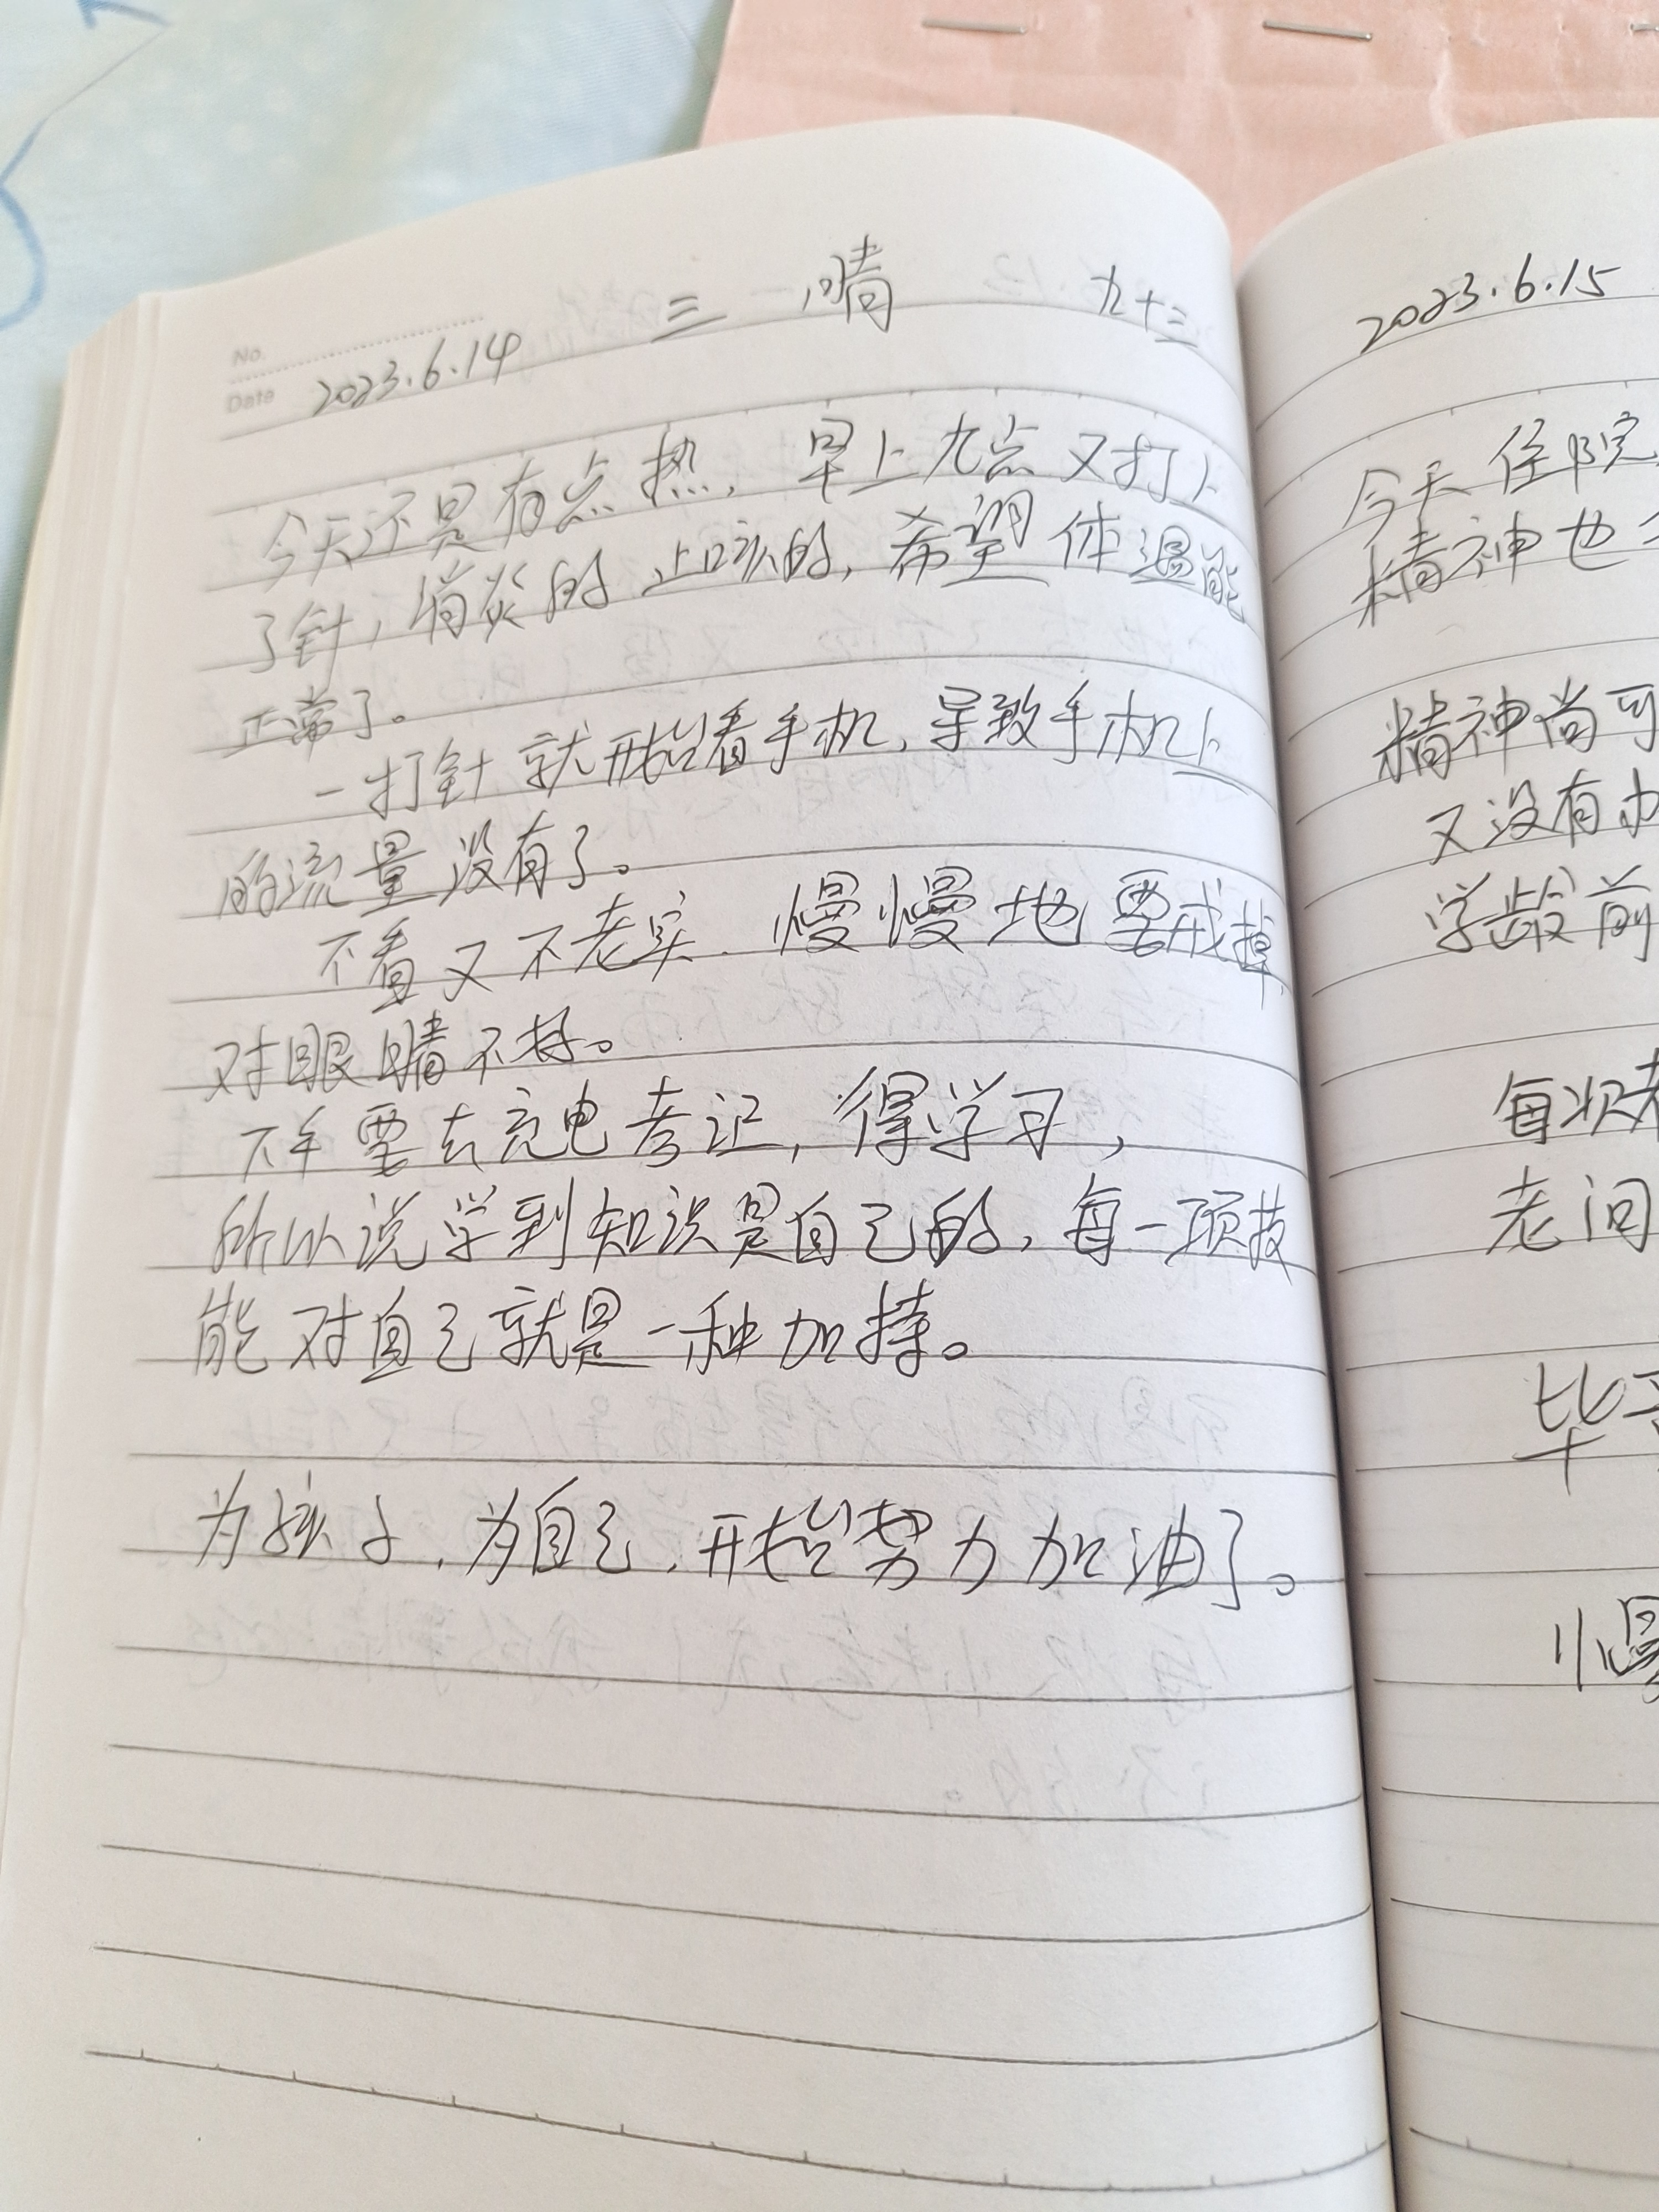 No.
Date 2023.6.14 三 晴 九十三
今天还是有点热，早上九点又打上
了针，消炎的 止咳的，希望体温能
正常了。
一打针就开始看手机，导致手机上
的流量没有了。
不看又不老实.慢慢地要戒掉,
对眼睛不好。
下午要去充电考证，得学习，
所以说学到知识是自己的，每一项技
能对自己就是一种加持。
为孩子，为自己，开始努力加油了。
2023.6.15
今天住院
精神也
精神尚可
又没有办
学龄前
每次
老问
毕
慢